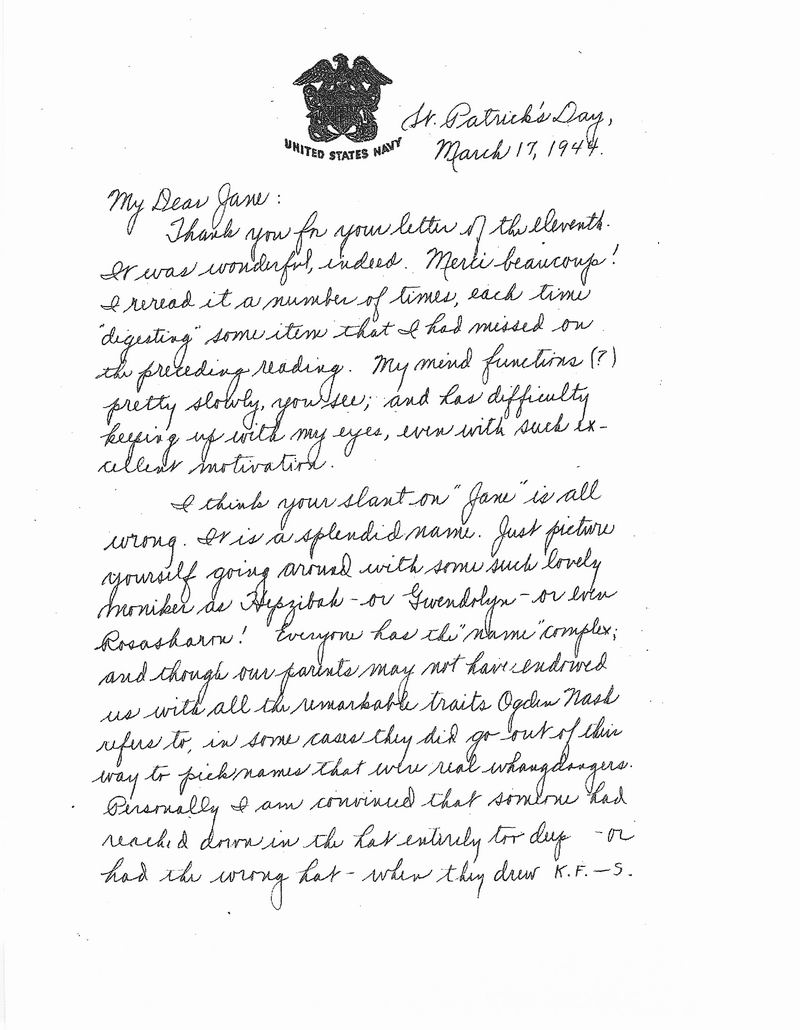 UNITED STATES NAVY
St. Patrick's Day,
March 17, 1944.
My Dear Jane:
Thank you for your letter of the eleventh.
It was wonderful, indeed. Merci beaucoup!
I reread it a number of times, each time
"digesting" some item that I had missed on
the preceding reading. My mind functions (?)
pretty slowly, you see; and has difficulty
keeping up with my eyes, even with such ex-
cellent motivation.
I think your slant on "Jane" is all
wrong. It is a splendid name. Just picture
yourself going around with some such lovely
moniker as Hepzibah - or Gwendolyn - or even
Rosasharon! Everyone has the "name" complex;
and though our parents may not have endowed
us with all the remarkable traits Ogden Nash
refers to, in some cases they did go out of their
way to pick names that were real whangdangers.
Personally I am convinced that someone had
reached down in the hat entirely too deep - or
had the wrong hat - when they drew K.F.—S.